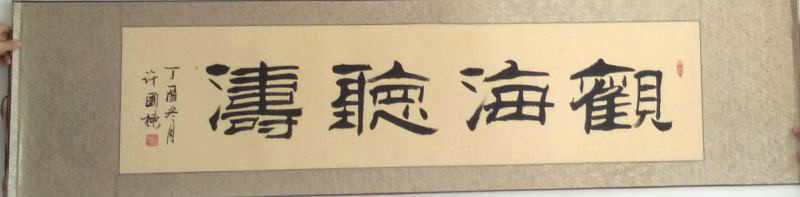 觀海聽濤
丁酉冬月
许國棟